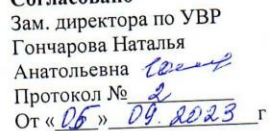 Согласовано
Зам. директора по УВР
Гончарова Наталья
Анатольевна
Протокол № 2
От «06» 09. 2023 г